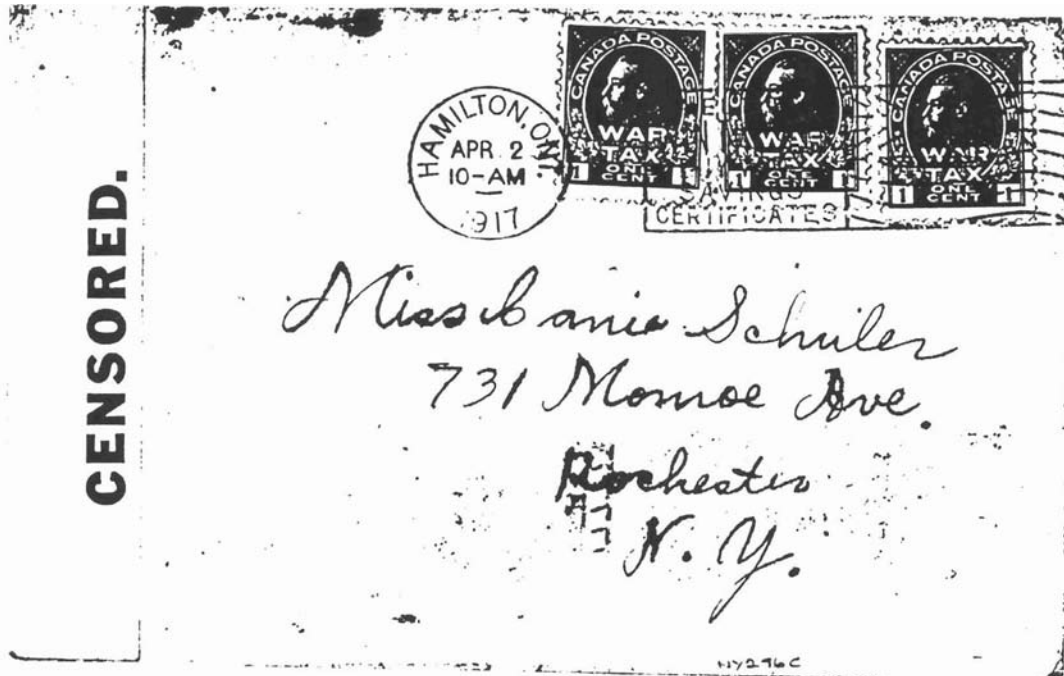 CENSORED.
HAMILTON, ONT.
APR 2
10-AM
1917
CANADA POSTAGE
WAR
TAX
1 ONE CENT 1
CANADA POSTAGE
WAR
TAX
1 ONE CENT 1
CANADA POSTAGE
WAR
TAX
1 ONE CENT 1
SAVINGS
CERTIFICATES
Miss Schuler
731 Monroe Ave.
Rochester
N. Y.
NY296C